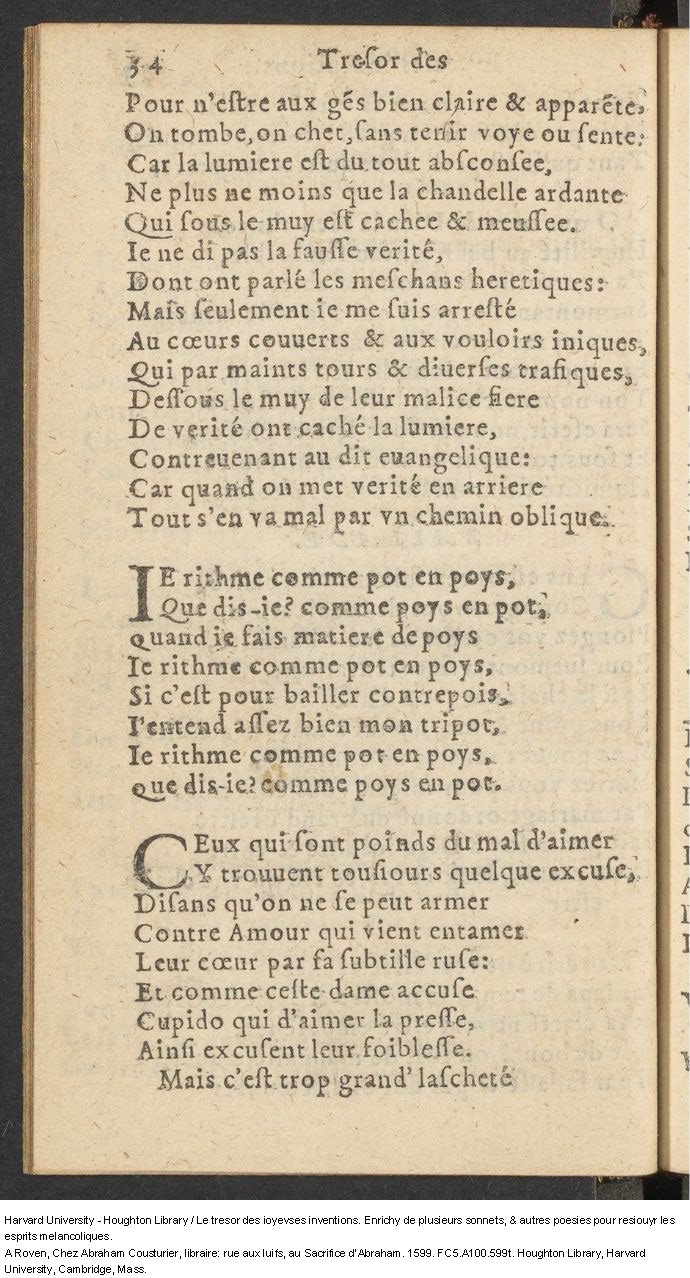 34 Treſor des
Pour n'eſtre aux gẽs bien claire & apparẽte,
On tombe, on chet, ſans tenir voye ou ſente:
Car la lumiere eſt du tout abſconſee,
Ne plus ne moins que la chandelle ardante
Qui ſous le muy eſt cachee & meuſſee.
Ie ne di pas la fauſſe verité,
Dont ont parlé les meſchans heretiques:
Mais ſeulement ie me ſuis arreſté
Au cœurs couuerts & aux vouloirs iniques,
Qui par maints tours & diuerſes trafiques,
Deſſous le muy de leur malice fiere
De verité ont caché la lumiere,
Contreuenant au dit euangelique:
Car quand on met verité en arriere
Tout s'en va mal par vn chemin oblique.
IE rithme comme pot en poys,
Que dis-ie? comme poys en pot,
quand ie fais matiere de poys
Ie rithme comme pot en poys,
Si c'eſt pour bailler contrepois,
I'entend aſſez bien mon tripot,
Ie rithme comme pot en poys,
que dis-ie? comme poys en pot.
CEux qui ſont poinds du mal d'aimer
Y trouuent touſiours quelque excuſe,
Diſans qu'on ne ſe peut armer
Contre Amour qui vient entamer
Leur cœur par ſa ſubtille ruſe:
Et comme ceſte dame accuſe
Cupido qui d'aimer la preſſe,
Ainſi excuſent leur foibleſſe.
Mais c'eſt trop grand' laſcheté
Harvard University - Houghton Library / Le tresor des ioyevses inventions. Enrichy de plusieurs sonnets, & autres poesies pour resiouyr les
esprits melancoliques.
A Roven, Chez Abraham Cousturier, libraire: rue aux Iuifs, au Sacrifice d'Abraham. 1599. FC5.A100.599t. Houghton Library, Harvard
University, Cambridge, Mass.